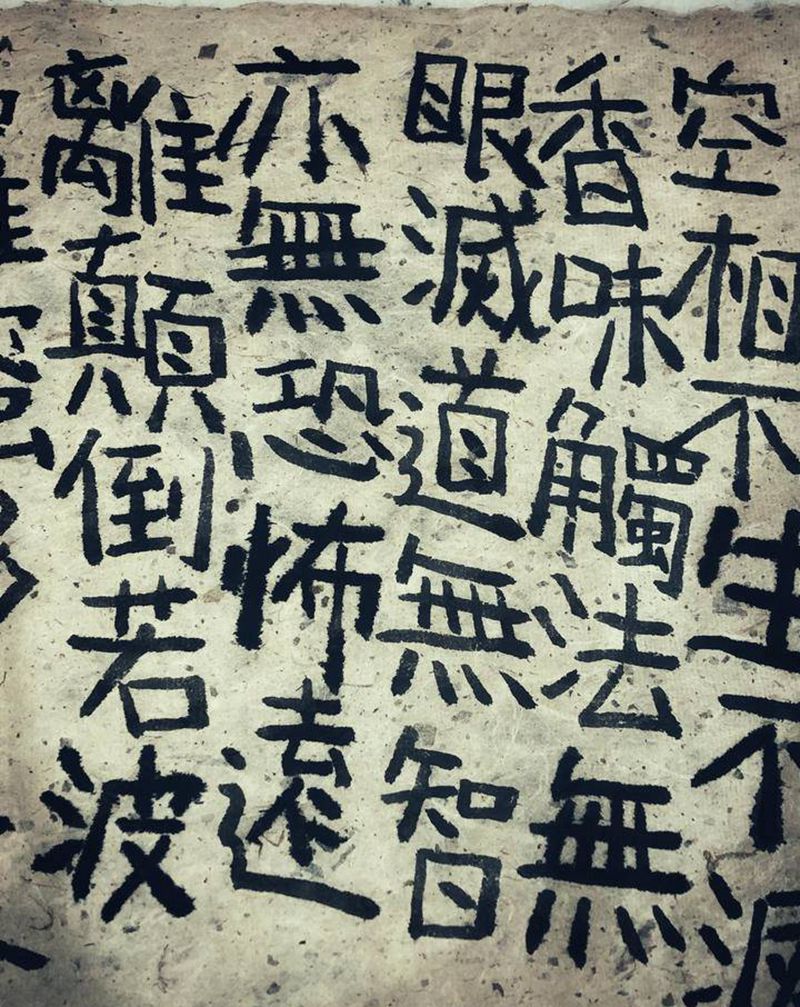 空相不生不滅
香味觸法無
眼滅道無智
亦無恐怖遠
離顛倒若波